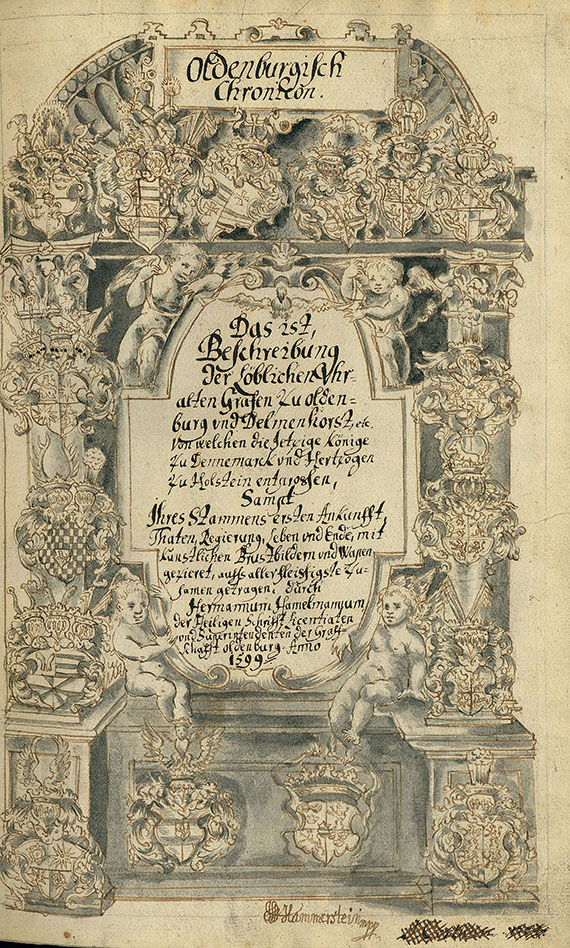 Oldenburgisch
Chronicon.
Das ist,
Beschreibung
der Löblichen Vhr-
alten Grafen Zu olden-
burg vnd Delmenhorst, etc.
Von welchen die Jetzige Könige
Zu Dennemarck vnd Hertzogen
Zu Holstein entsprossen,
Sampt
Ihres Stammens ersten Ankunfft,
Thaten, Regierung, Leben vnd Ende, mit
künstlichen Brustbildern vnd Wapen
gezieret, auffs allerfleissigste Zu-
samen getragen, durch
Hermannum Hamelmannum
der Heiligen Schrifft Licentiaten
vnd Superintendenten der Graff-
schafft oldenburg. Anno
1599
Hammerstein mpp